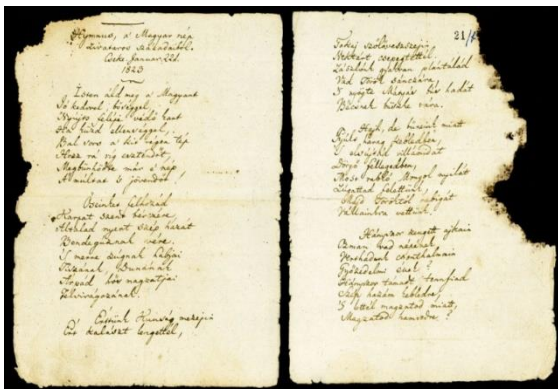 Hymnus, a' Magyar nép
zivataros századaiból.
Cseke, Januar. 22d.
1823
Isten áldd meg a' Magyart
Jó kedvvel, bőséggel,
Nyújts feléje védő kart
Ha küzd ellenséggel;
Bal sors a' kit régen tép
Hozz rá víg esztendőt,
Megbünhődte már e' nép
A' multat 's jövendőt!
Őseinket felhozád
Kárpát szent bérczére,
Általad nyert szép hazát
Bendegúznak vére.
'S merre zúgnak habjai
Tiszának, Dunának
Árpád hős magzatjai
Felvirágozának.
Értünk Kunság mezején
Ért kalászt lengettél,
21
Tokaj szőlővesszein
Nektárt csepegtettél.
Zászlónk gyakran plántálád
Vad Török sánczára,
'S nyögte Mátyás bús hadát
Bécsnek büszke vára.
Hajh, de bűneink miatt
Gyúlt harag kebledben,
'S elsújtád villámidat
Dörgő fellegedben,
Most rabló Mongol nyilát
Zúgattad felettünk,
Majd Töröktől rabigát
Vállainkra vettünk.
Hányszor zengett ajkain
Ozman vad népének
Vert hadunk csonthalmain
Győzedelmi ének!
Hányszor támadt tenfiad
Szép hazám kebledre,
'S lettél magzatod miatt,
Magzatod hamvedre?